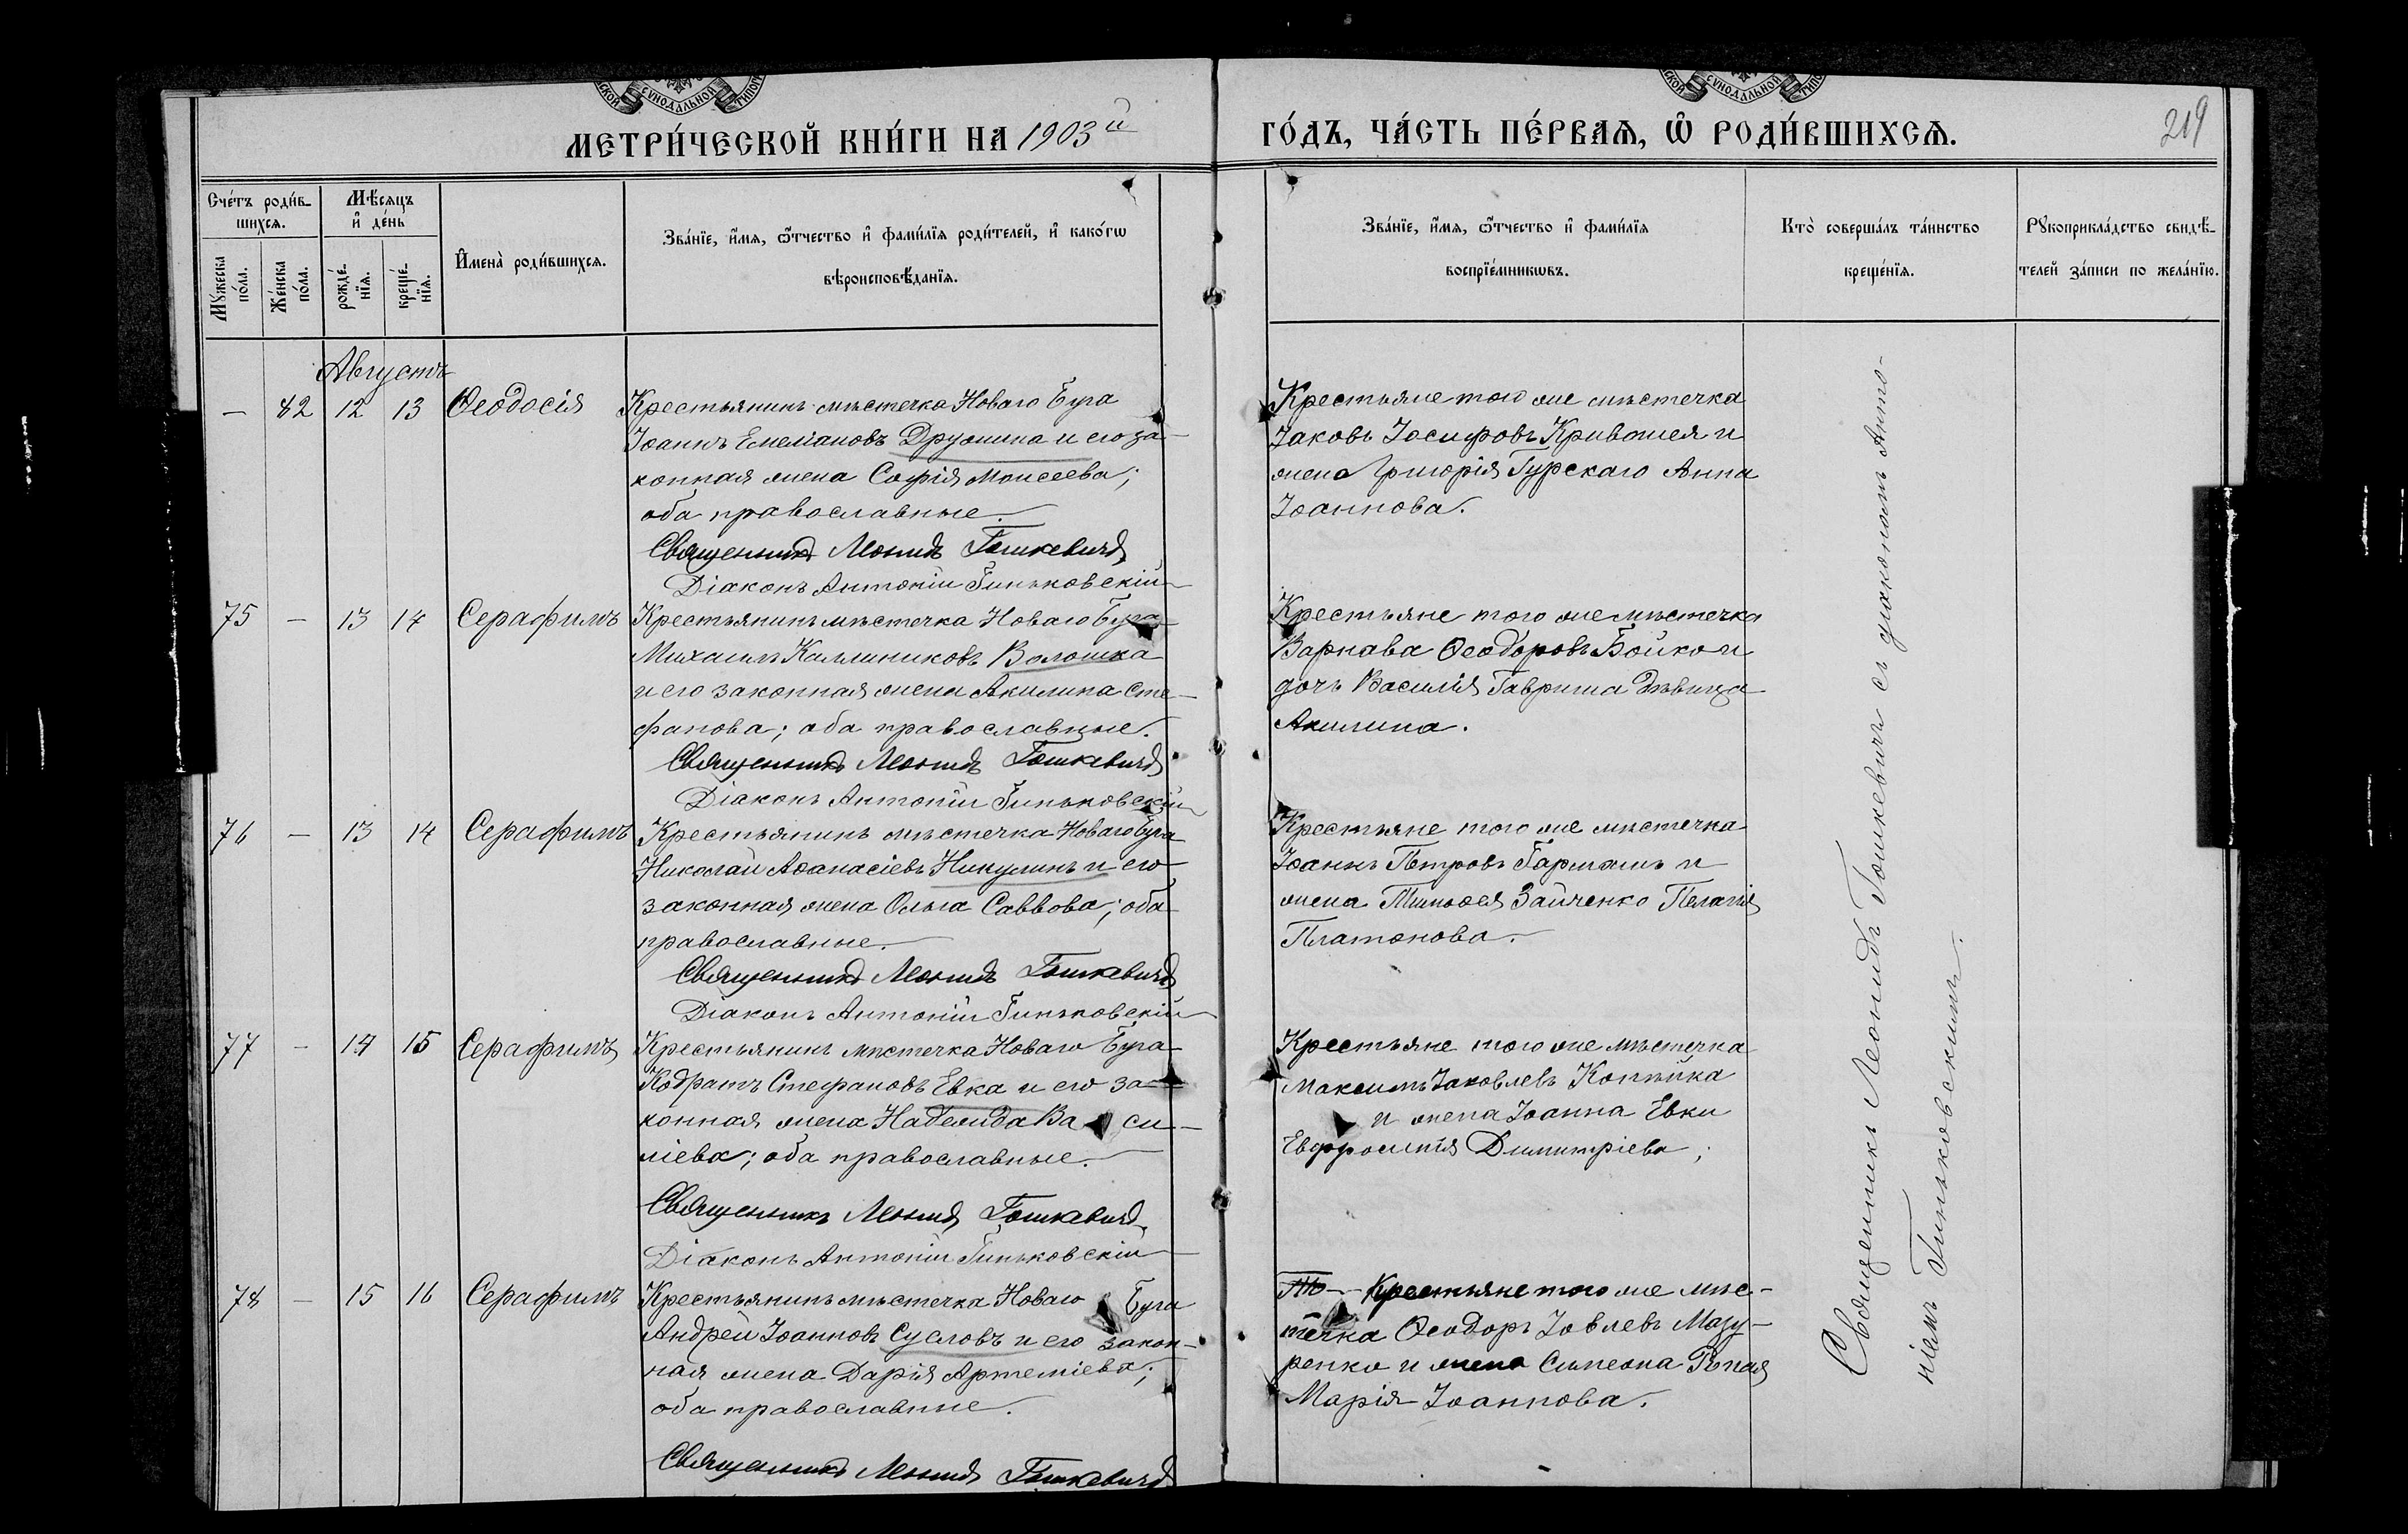 МЕТРИ́ЧЕСКОЙ КНИ́ГИ НА 1903й
ГО́ДЪ, ЧА́СТЬ ПЕ́РВАѦ, Ѡ҆ РОДИ́ВШИХСѦ.
219
Сче́тъ роди́в-
шихсѧ.
Мѣ́сѧцъ
и҆ де́нь
Мꙋ́жеска
по́ла.
Же́нска
по́ла.
рожде́-
нїѧ.
креще́-
нїѧ.
И҆мена̀ роди́вшихсѧ.
Зва́нїе, и҆́мѧ, ѻ҆́тчество и҆ фами́лїѧ роди́телей, и҆ како́гѡ
вѣроисповѣ́данїѧ.
Зва́нїе, и҆́мѧ, ѻ҆́тчество и҆ фами́лїѧ
воспрїе́мникѡвъ.
Кто̀ соверша́лъ та́инство
креще́нїѧ.
Рꙋкоприкла́дство свидѣ́-
телей за́писи по жела́нїю.
Августъ
— 82 12 13 Ѳеодосія
Крестьянинъ мѣстечка Новаго Буга
Іоаннъ Емеліановъ Дружина и его за-
конная жена Софія Моисеева;
оба православные.
Священникъ Леонидъ Гошкевичъ
Діаконъ Антоній Гиньковскій
Крестьяне того же мѣстечка
Іаковъ Іосифовъ Кривошея и
жена Григорія Гурскаго Анна
Іоаннова.
75 — 13 14 Серафимъ
Крестьянинъ мѣстечка Новаго Буга
Михаилъ Каллиниковъ Волошка
и его законная жена Акилина Сте-
фанова; оба православные.
Священникъ Леонидъ Гошкевичъ
Діаконъ Антоній Гиньковскій
Крестьяне того же мѣстечка
Варнава Ѳеодоровъ Бойко и
дочь Василія Гавриша дѣвица
Акилина.
76 — 13 14 Серафимъ
Крестьянинъ мѣстечка Новаго Буга
Николай Аѳанасіевъ Никулинъ и его
законная жена Ольга Саввова; оба
православные.
Священникъ Леонидъ Гошкевичъ
Діаконъ Антоній Гиньковскій
Крестьяне того же мѣстечка
Іоаннъ Петровъ Гармашъ и
жена Тимоѳея Зайченко Пелагія
Платонова.
77 — 14 15 Серафимъ
Крестьянинъ мѣстечка Новаго Буга
Кодратъ Стефановъ Евка и его за-
конная жена Надежда Васи-
ліева; оба православные.
Священникъ Леонидъ Гошкевичъ
Діаконъ Антоній Гиньковскій
Крестьяне того же мѣстечка
Максимъ Іаковлевъ Копѣйка
и жена Іоанна Евки
Евфросинія Димитріева;
78 — 15 16 Серафимъ
Крестьянинъ мѣстечка Новаго Буга
Андрей Іоанновъ Сусловъ и его закон-
ная жена Дарія Артеміева;
оба православные.
Священникъ Леонидъ Гошкевичъ
Крестьяне того же мѣс-
течка Ѳеодоръ Іовлевъ Мазу-
ренко и жена Симеона
Марія Іоаннова.
Священникъ Леонидъ Гошкевичъ съ діакономъ Анто-
ніемъ Гиньковскимъ.